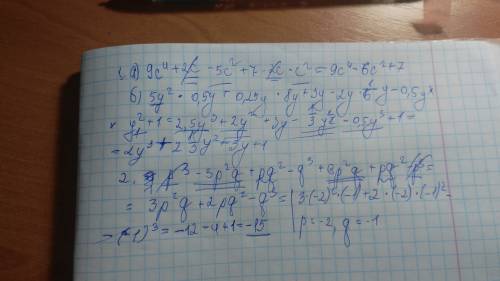 1. а) 9c⁴ + 2c - 5c² + 7 - 2c · c² = 9c⁴ - 6c² + 7
б) 5y² · 0,5y + 0,25y · 8y + 3y - 2y · 1/6 y - 0,5y ×
× y² + 1 = 2,5y³ + 2y² + 3y - 1/3 y² - 0,5y³ + 1 =
= 2y³ + 2/3 y² + 3y + 1
2. p³ - 5p²q + pq² - q³ + 8p²q + pq² - p³ =
= 3p²q + 2pq² - q³ = | 3·(-2)²·(-1) + 2·(-2)·(-1)² -
- (-1)³ = -12 - 4 + 1 = -15 | p = -2, q = -1